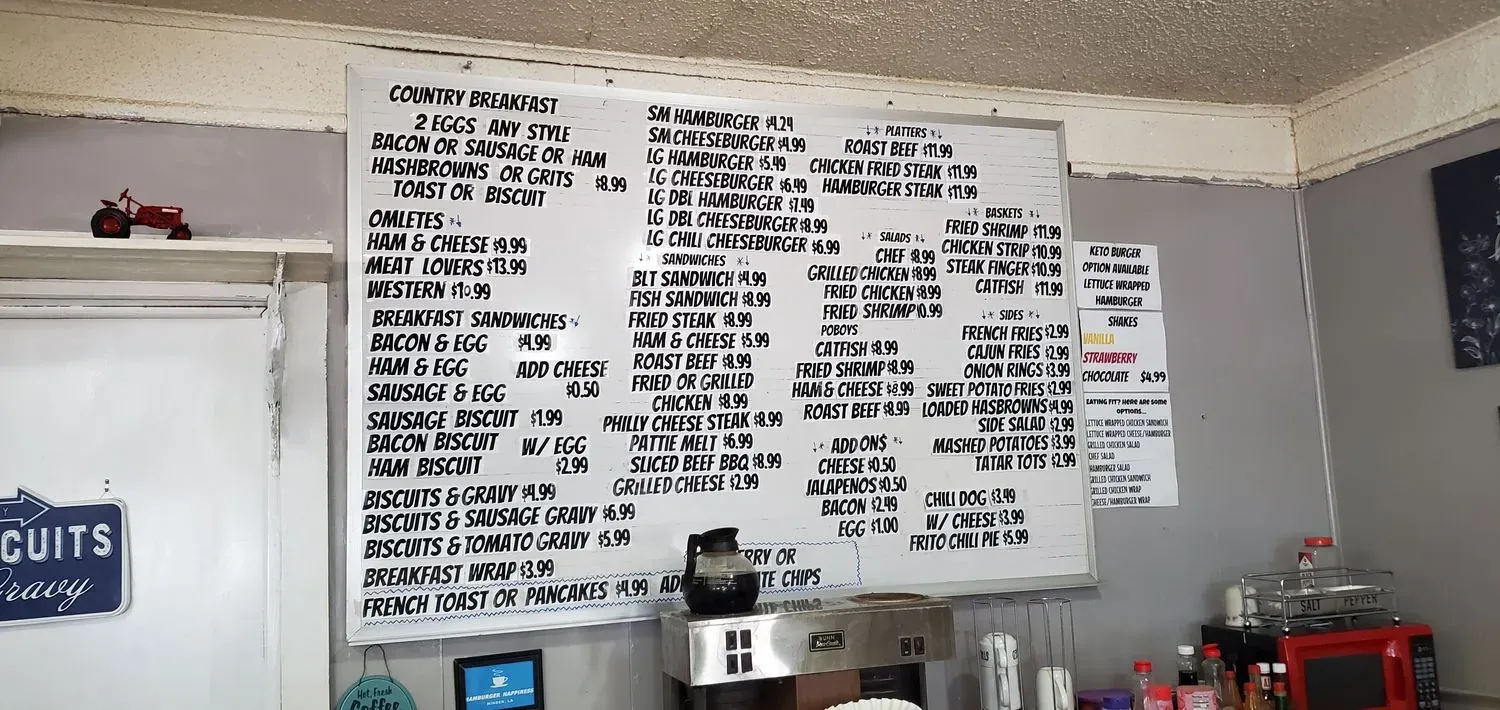 COUNTRY BREAKFAST
2 EGGS ANY STYLE
BACON OR SAUSAGE OR HAM
HASHBROWNS OR GRITS $8.99
TOAST OR BISCUIT
OMLETES
HAM & CHEESE $9.99
MEAT LOVERS $13.99
WESTERN $10.99
BREAKFAST SANDWICHES
BACON & EGG $4.99
HAM & EGG ADD CHEESE
SAUSAGE & EGG $0.50
SAUSAGE BISCUIT $1.99
BACON BISCUIT W/ EGG
HAM BISCUIT $2.99
BISCUITS & GRAVY $4.99
BISCUITS & SAUSAGE GRAVY $6.99
BISCUITS & TOMATO GRAVY $5.99
BREAKFAST WRAP $3.99
FRENCH TOAST OR PANCAKES $4.99
RRY OR
CHIPS
SM HAMBURGER $4.24
SM CHEESEBURGER $4.99
LG HAMBURGER $5.49
LG CHEESEBURGER $6.49
LG DBL HAMBURGER $7.49
LG DBL CHEESEBURGER $8.99
LG CHILI CHEESEBURGER $6.99
SANDWICHES
BLT SANDWICH $4.99
FISH SANDWICH $8.99
FRIED STEAK $8.99
HAM & CHEESE $5.99
ROAST BEEF $8.99
FRIED OR GRILLED
CHICKEN $8.99
PHILLY CHEESE STEAK $8.99
PATTIE MELT $6.99
SLICED BEEF BBQ $8.99
GRILLED CHEESE $2.99
PLATTERS
ROAST BEEF $11.99
CHICKEN FRIED STEAK $11.99
HAMBURGER STEAK $11.99
SALADS
CHEF $8.99
GRILLED CHICKEN $8.99
FRIED CHICKEN $8.99
FRIED SHRIMP 10.99
POBOYS
CATFISH $8.99
FRIED SHRIMP $8.99
HAM & CHEESE $8.99
ROAST BEEF $8.99
ADD ON$
CHEESE $0.50
JALAPENOS $0.50
BACON $2.49
EGG $1.00
BASKETS
FRIED SHRIMP $11.99
CHICKEN STRIP $10.99
STEAK FINGER $10.99
CATFISH $11.99
SIDES
FRENCH FRIES $2.99
CAJUN FRIES $2.99
ONION RINGS $3.99
SWEET POTATO FRIES $2.99
LOADED HASBROWNS $4.99
SIDE SALAD $2.99
MASHED POTATOES $3.99
TATAR TOTS $2.99
CHILI DOG $3.49
W/ CHEESE $3.99
FRITO CHILI PIE $5.99
KETO BURGER
OPTION AVAILABLE
LETTUCE WRAPPED
HAMBURGER
SHAKES
VANILLA
STRAWBERRY
CHOCOLATE $4.99
EATING FIT? HERE ARE SOME
OPTIONS...
LETTUCE WRAPPED CHICKEN SANDWICH
LETTUCE WRAPPED CHEESE/HAMBURGER
GRILLED CHICKEN SALAD
CHEF SALAD
HAMBURGER SALAD
GRILLED CHICKEN SANDWICH
GRILLED CHICKEN WRAP
CHEESE/HAMBURGER WRAP
CUITS
Gravy
Hot, Fresh
Coffee
HAMBURGER HAPPINESS
MINDEN, LA
BUNN
SALT PEPPER